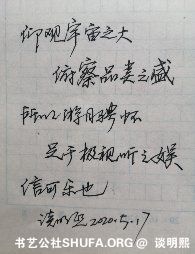 仰观宇宙之大
俯察品类之盛
所以游目骋怀
足于极视听之娱
信可乐也
谈明熙2020.5.17
书艺公社SHUFA.ORG@ 谈明熙